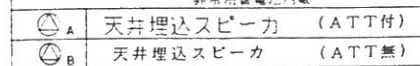 A 天井埋込スピーカ (ATT付)
B 天井埋込スピーカ (ATT無)